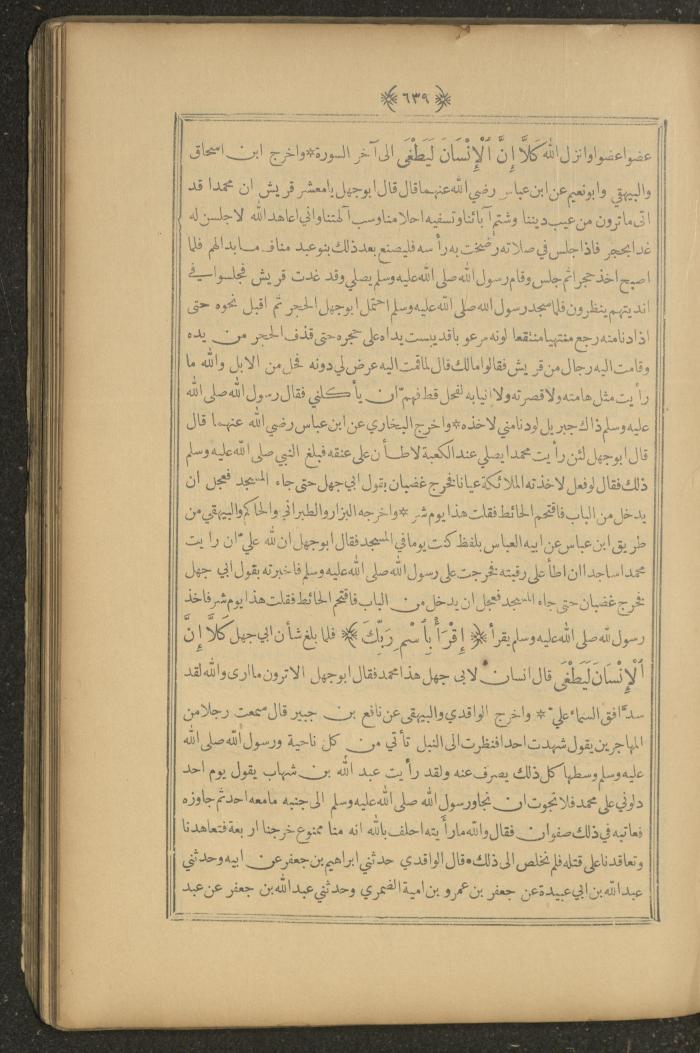 ﴿ ٦٣٩ ﴾
عضوا عضوا وانزل الله كَلَّا إِنَّ ٱلْإِنْسَانَ لَيَطْغَى الى آخر السورة*واخرج ابن اسحاق
والبيهقي وابونعيم عن ابن عباس رضي الله عنهما قال قال ابوجهل يامعشر قريش ان محمدا قد
اتى ماترون من عيب ديننا وشتم آبائنا وتسفيه احلامنا وسب آلهتنا واني اعاهد الله لاجلسن له
غدا بحجر فاذا جلس في صلاته رضخت به رأسه فليصنع بعد ذلك بنو عبد مناف مابدالهم فلما
اصبح اخذ حجرا ثم جلس وقام رسول الله صلى الله عليه وسلم يصلي وقد غدت قريش فجلسوا في
انديتهم ينظرون فلما سجد رسول الله صلى الله عليه وسلم احتمل ابوجهل الحجر ثم اقبل نحوه حتى
اذا دنا منه رجع منتهيا منتقعا لونه مرعوبا قد يبست يداه على حجره حتى قذف الحجر من يده
وقامت اليه رجال من قريش فقالوا مالك قال لما قمت اليه عرض لي دونه فحل من الابل والله ما
رأيت مثل هامته ولا قصرته ولا انيابه لفحل قط فهمّ ان يأكلني فقال رسول الله صلى الله
عليه وسلم ذاك جبريل لودنا مني لاخذه*واخرج البخاري عن ابن عباس رضي الله عنهما قال
قال ابوجهل لئن رأيت محمدا يصلي عند الكعبة لاطأن على عنقه فبلغ النبي صلى الله عليه وسلم
ذلك فقال لو فعل لاخذته الملائكة عيانا فخرج غضبان بقول ابي جهل حتى جاء المسجد فعجل ان
يدخل من الباب فاقتحم الحائط فقلت هذا يوم شر*واخرجه البزار والطبراني والحاكم والبيهقي من
طريق ابن عباس عن ابيه العباس بلفظ كنت يوما في المسجد فقال ابوجهل ان لله عليّ ان رايت
محمدا ساجدا ان اطأ على رقبته فخرجت على رسول الله صلى الله عليه وسلم فاخبرته بقول ابي جهل
فخرج غضبان حتى جاء المسجد فعجل ان يدخل من الباب فاقتحم الحائط فقلت هذا يوم شر فاخذ
رسول الله صلى الله عليه وسلم يقرأ ﴿ إِقْرَأْ بِٱسْمِ رَبِّكَ ﴾ فلما بلغ شأن ابي جهل كَلَّا إِنَّ
ٱلْإِنْسَانَ لَيَطْغَى قال انسان لابي جهل هذا محمد فقال ابوجهل الاترون ماارى والله لقد
سدّ افق السماء عليّ * واخرج الواقدي والبيهقي عن نافع بن جبير قال سمعت رجلا من
المهاجرين يقول شهدت احدا فنظرت الى النبل تأتي من كل ناحية ورسول الله صلى الله
عليه وسلم وسطها كل ذلك يصرف عنه ولقد رأيت عبد الله بن شهاب يقول يوم احد
دلوني على محمد فلا نجوت ان نجا ورسول الله صلى الله عليه وسلم الى جنبه مامعه احد ثم جاوزه
فعاتبه في ذلك صفوان فقال والله مارأيته احلف بالله انه منا ممنوع خرجنا اربعة فتعاهدنا
وتعاقدنا على قتله فلم نخلص الى ذلك*قال الواقدي حدثني ابراهيم بن جعفر عن ابيه وحدثني
عبد الله بن ابي عبيدة عن جعفر بن عمرو بن امية الضمري وحدثني عبد الله بن جعفر عن عبد